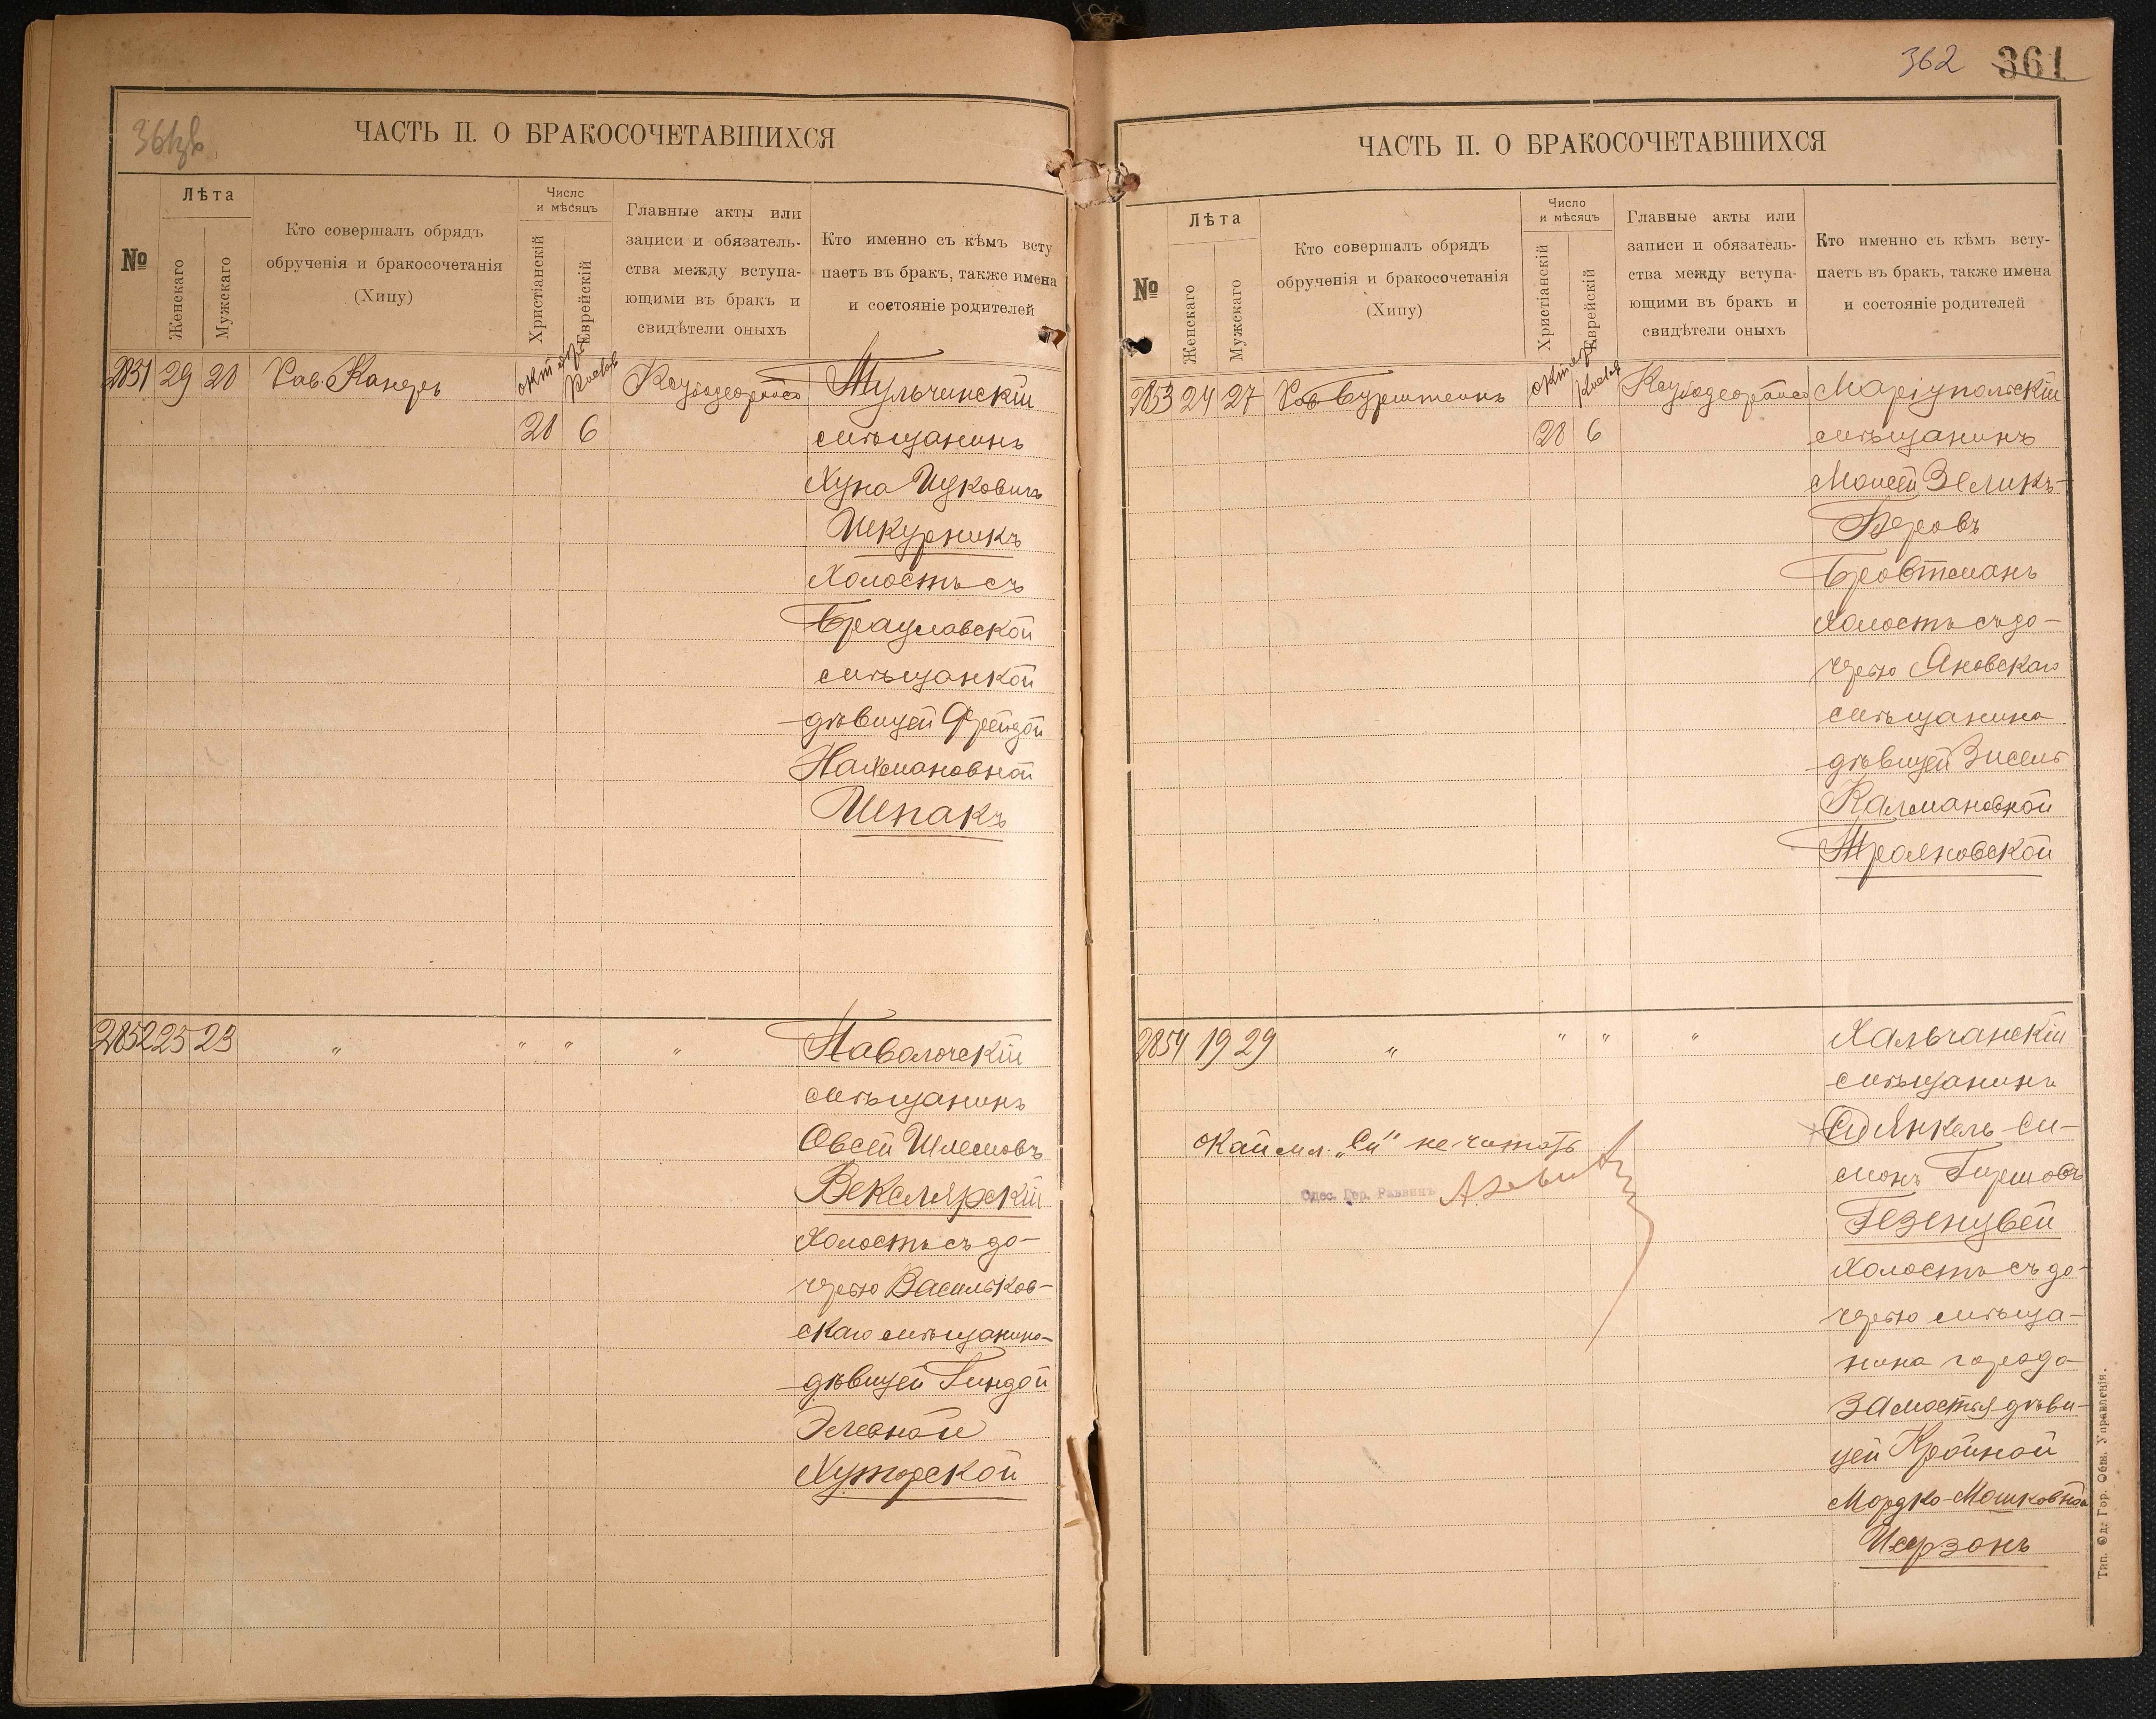 361зв
ЧАСТЬ II. О БРАКОСОЧЕТАВШИХСЯ
№
Лѣта
Женскаго
Мужскаго
Кто совершалъ обрядъ
обрученія и бракосочетанія
(Хипу)
Число
и мѣсяцъ
Христіанскій
Еврейскій
Главные акты или
записи и обязатель-
ства между вступа-
ющими въ бракъ и
свидѣтели оныхъ
Кто именно съ кѣмъ всту
паетъ въ бракъ, также имена
и состояніе родителей
2851 29 28 Рав. Канеръ октябрь Тульчинскій
28 6 мѣщанинъ
Хуна Ицковичъ
Шкурникъ
холостъ съ
Брацлавской
мѣщанкой
дѣвицей Фрейдой
Нахмановной
Шпакъ
2852 25 23 " " " " Паволочскій
мѣщанинъ
Овсей Шлемовъ
Векслярскій
холостъ съ до-
черью Васильков-
скаго мѣщанина
дѣвицей Гиндой
Элевной
Хуторской
362 361
ЧАСТЬ II. О БРАКОСОЧЕТАВШИХСЯ
№
Лѣта
Женскаго
Мужскаго
Кто совершалъ обрядъ
обрученія и бракосочетанія
(Хипу)
Число
и мѣсяцъ
Христіанскій
Еврейскій
Главные акты или
записи и обязатель-
ства между вступа-
ющими въ бракъ и
свидѣтели оныхъ
Кто именно съ кѣмъ всту-
паетъ въ бракъ, также имена
и состояніе родителей
2853 24 27 Рав Бурштейнъ октябрь Маріупольскій
28 6 мѣщанинъ
Моисей Зеликъ-
Беровъ
Бровтманъ
холостъ съ до-
черью Яновскаго
мѣщанина
дѣвицей Зисель
Калмановной
Трояновской
2854 19 29 " " " " Хальчанскій
мѣщанинъ
Си Янкель Си-
монъ Гершовъ
Гезенцвей
холостъ съ до-
черью мѣща-
нина города
Замостья дѣви-
цей Кройной
Мордко-Мошковной
Иерзонъ
"Си" не читать
Одес. Гор. Раввинъ
Тип. Од. Гор. Общ. Управленія.